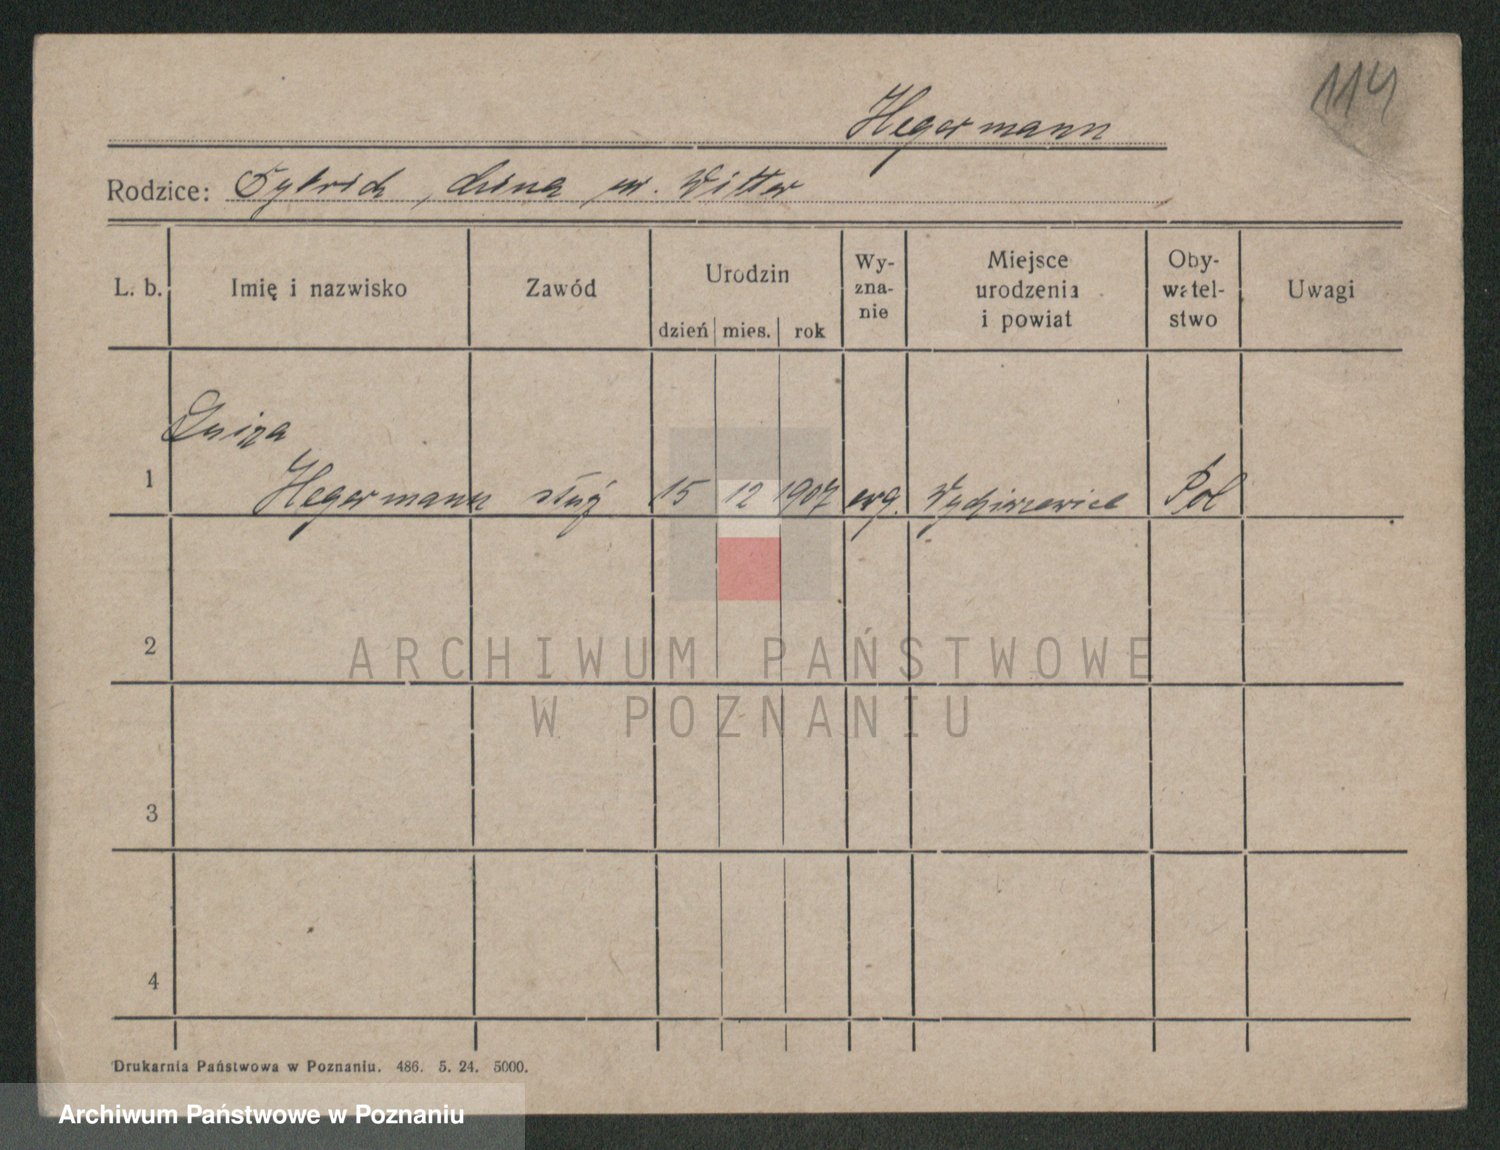 114
Hegermann
Rodzice: Fydrich, Anna ur. Witter
L. b. Imię i nazwisko Zawód Urodzin dzień mies. rok Wy-zna-nie Miejsce urodzenia i powiat Oby-watel-stwo Uwagi
Luiza
1 Hegermann służ 15 12 1907 ewg. Pol
2
ARCHIWUM PAŃSTWOWE
W POZNANIU
3
4
Drukarnia Państwowa w Poznaniu. 486. 5. 24. 5000.
Archiwum Państwowe w Poznaniu